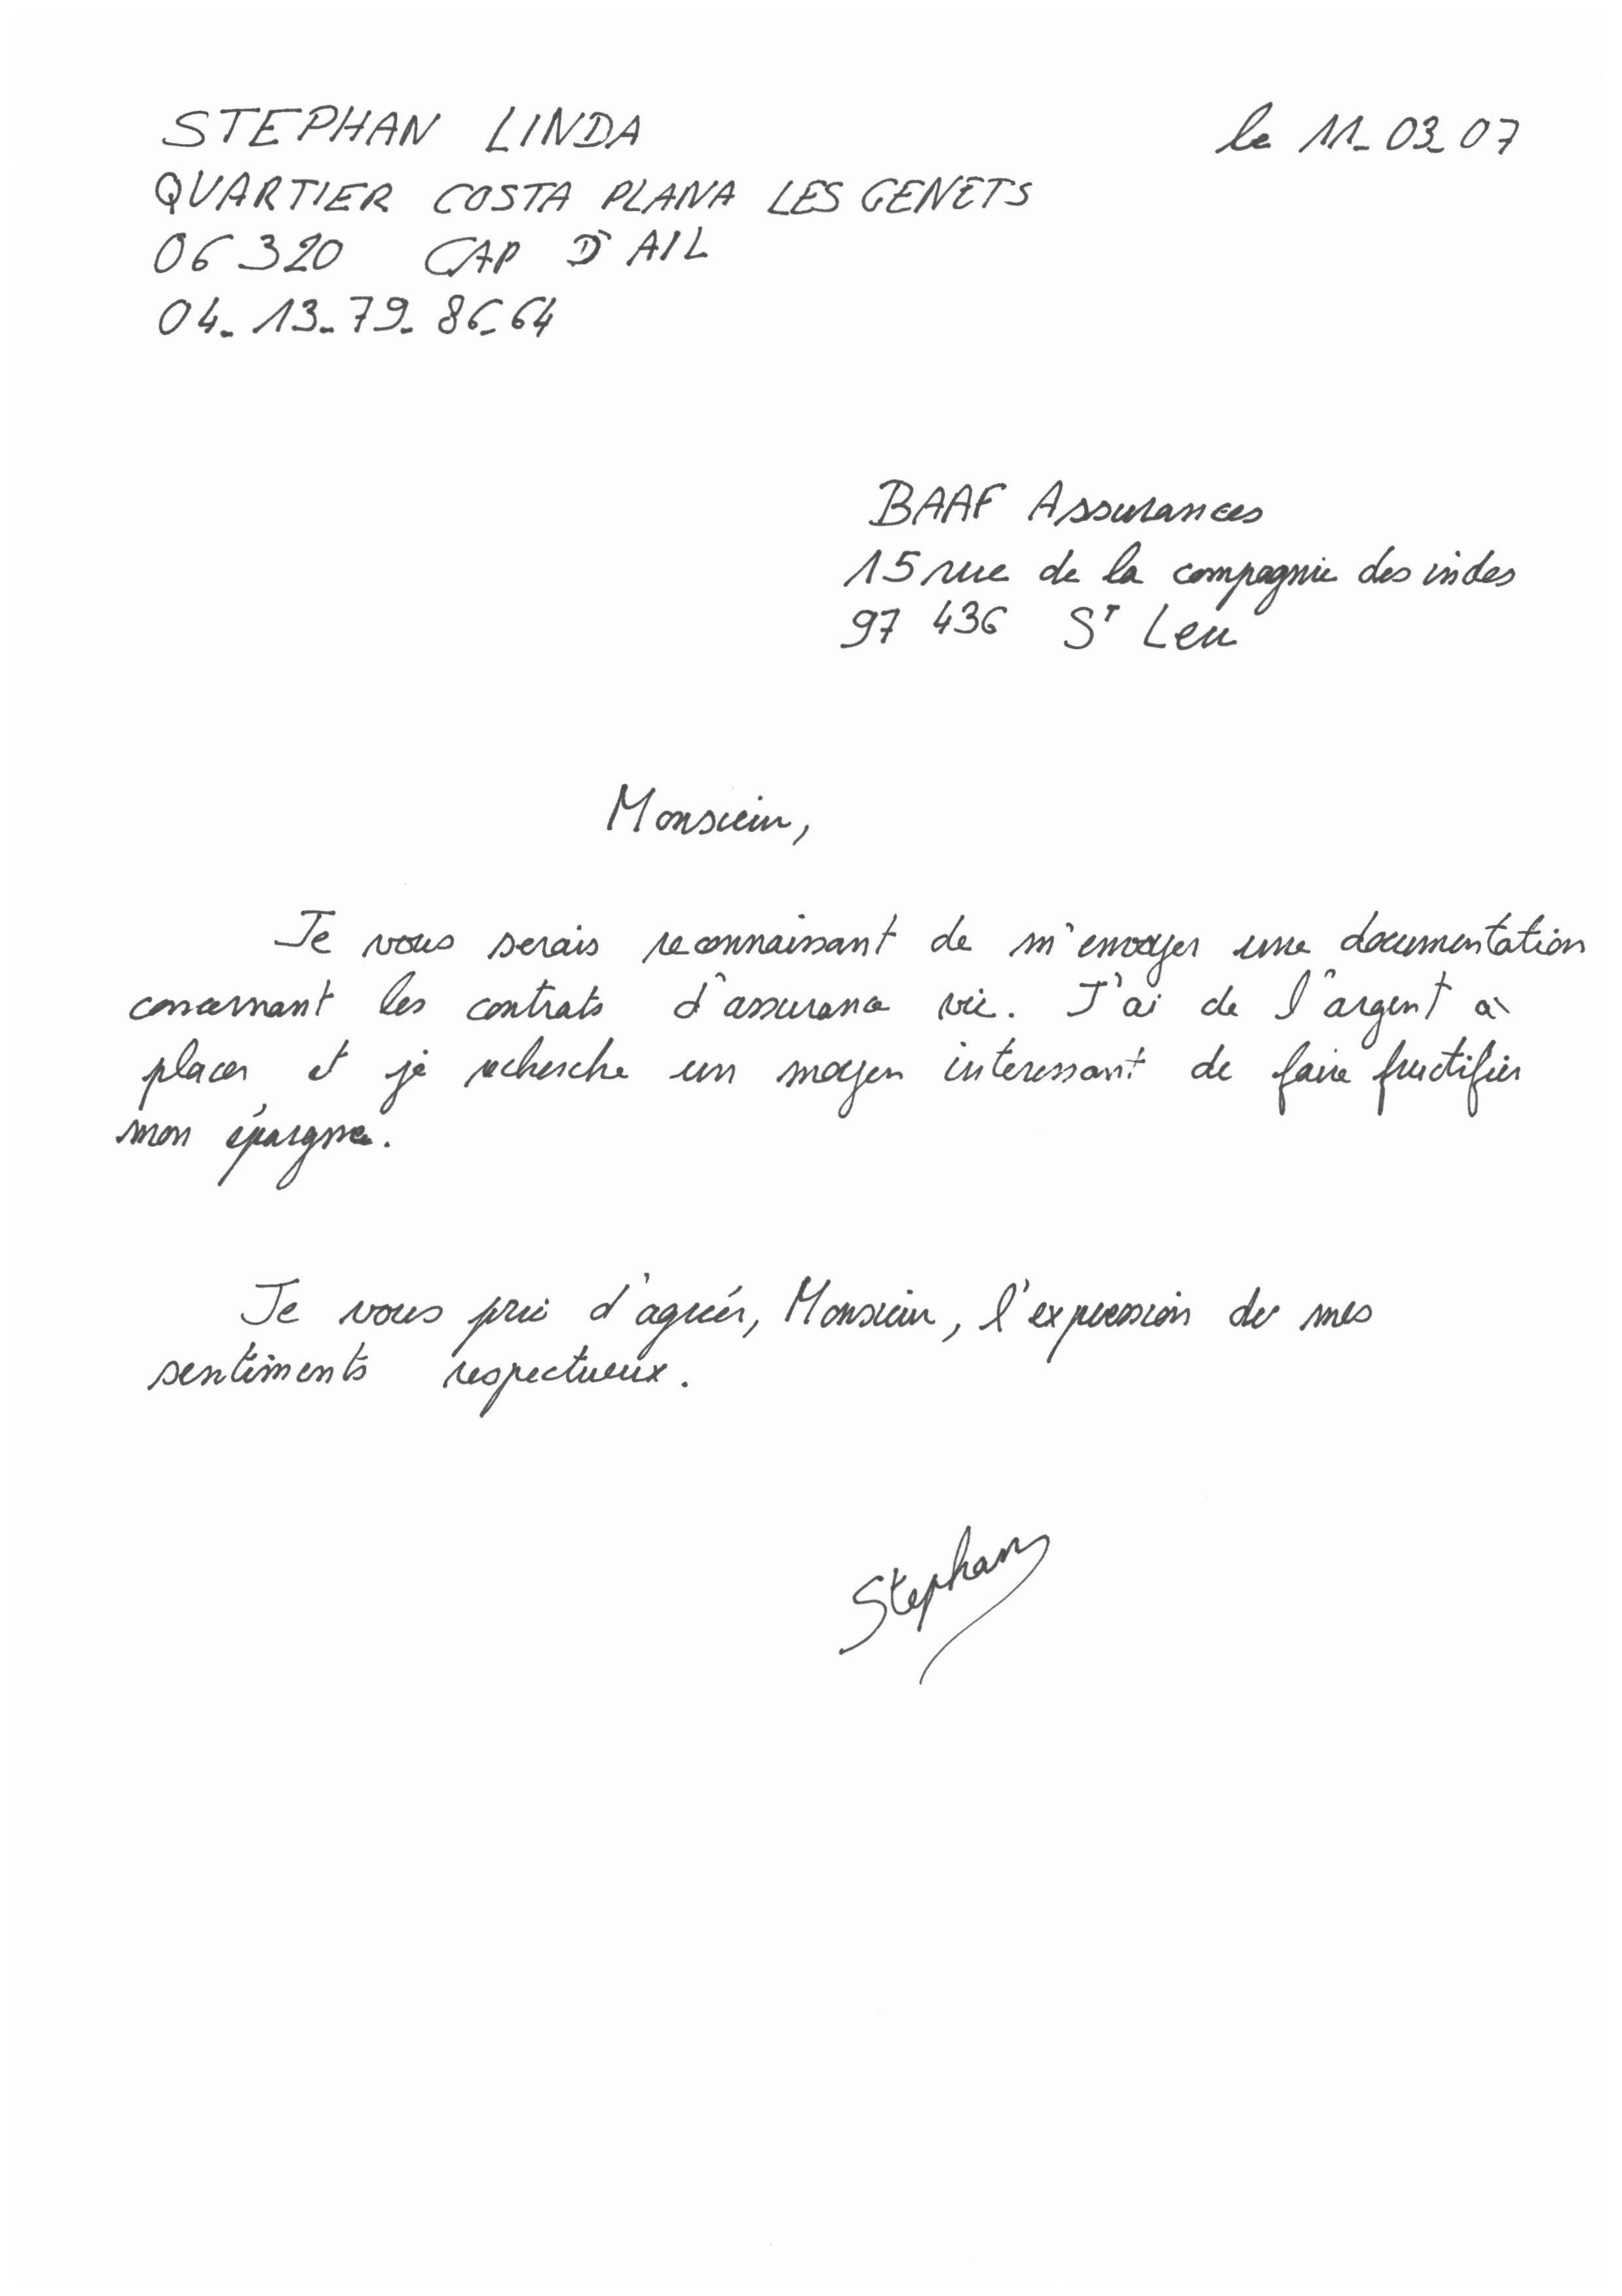 STEPHAN LINDA
le 11_03_07
QUARTIER COSTA PLANA LES GENETS
06 320 CAP D'AIL
04_13_79_86_64
BAAF Assurances
15 rue de la compagnie des indes
97 436 ST Leu
Monsieur,
Je vous serais reconnaissant de m'envoyer une documentation
concernant les contrats d'assurance vie. J'ai de l'argent à
placer et je recherche un moyen interessant de faire fructifier
mon épargne.
Je vous prie d'agréér, Monsieur, l'expression de mes
sentiments respectueux.
Stephan